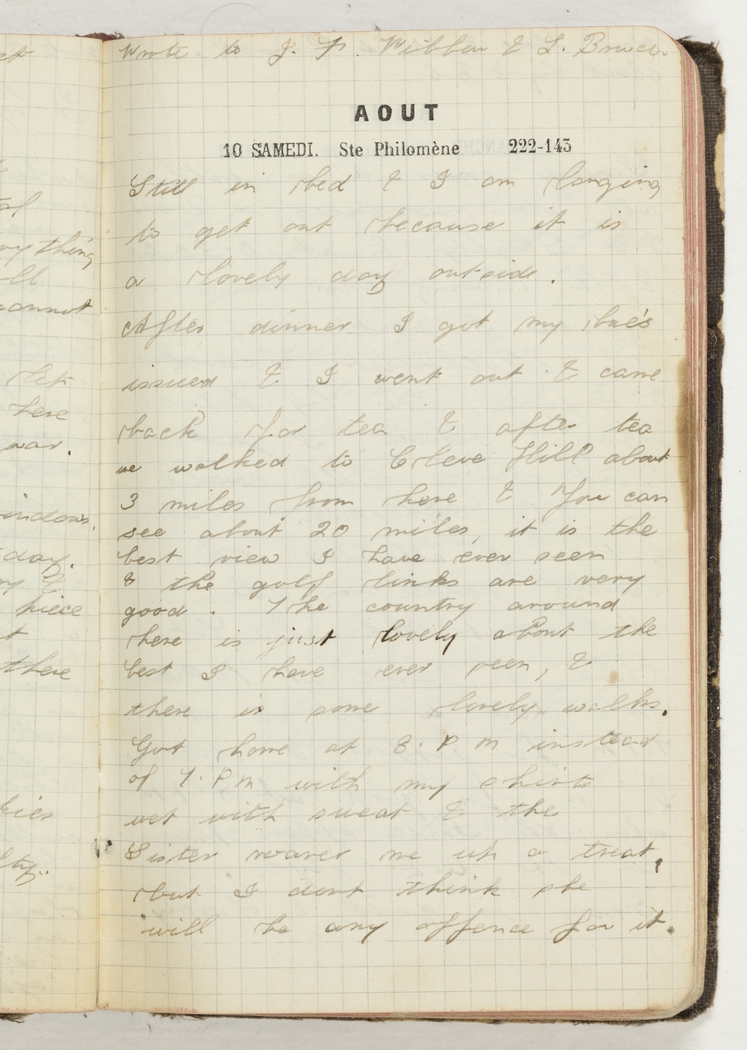 Wrote to J. F. Wibben & L. Bruce.
AOUT
10 SAMEDI. Ste Philomène 222-143
Still in bed & I am longing
to get out because it is
a lovely day outside.
After dinner I got my blue's
issued & I went out & came
back for tea & after tea
we walked to Cleve Hill about
3 miles from here & You can
see about 20 miles, it is the
best view I have ever seen
& the golf links are very
good. The country around
here is just lovely about the
best I have ever seen, &
there is some lovely walks.
Got home at 8. P m instead
of 7. P m with my shirts
wet with sweat & the
Sister roared me up a treat,
but I dont think she
will be any offence for it.
ything
cannot
here
war.
indows.
day.
piece
there